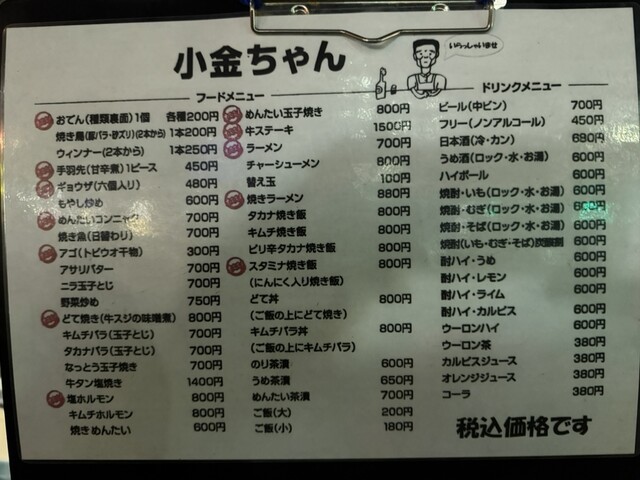 小金ちゃん
いらっしゃいませ
フードメニュー
おでん(種類裏面)1個 各種200円
焼き鳥(豚バラ・砂ズリ)(2本から) 1本200円
ウィンナー(2本から) 1本250円
手羽先(甘辛煮)1ピース 450円
ギョウザ(六個入り) 480円
もやし炒め 600円
めんたいコンニャク 700円
焼き魚(日替わり) 700円
アゴ(トビウオ干物) 300円
アサリバター 700円
ニラ玉子とじ 700円
野菜炒め 750円
どて焼き(牛スジの味噌煮) 800円
キムチバラ(玉子とじ) 700円
タカナバラ(玉子とじ) 700円
なっとう玉子焼き 700円
牛タン塩焼き 1400円
塩ホルモン 800円
キムチホルモン 800円
焼きめんたい 600円
めんたい玉子焼き 800円
牛ステーキ 1500円
ラーメン 700円
チャーシューメン 800円
替え玉 100円
焼きラーメン 880円
タカナ焼き飯 800円
キムチ焼き飯 800円
ピリ辛タカナ焼き飯 800円
スタミナ焼き飯 800円
(にんにく入り焼き飯)
どて丼 800円
(ご飯の上にどて焼き)
キムチバラ丼 800円
(ご飯の上にキムチバラ)
のり茶漬 600円
うめ茶漬 650円
めんたい茶漬 700円
ご飯(大) 200円
ご飯(小) 180円
ドリンクメニュー
ビール(中ビン) 700円
フリー(ノンアルコール) 450円
日本酒(冷・カン) 680円
うめ酒(ロック・水・お湯) 600円
ハイボール 600円
焼酎・いも(ロック・水・お湯) 600円
焼酎・むぎ(ロック・水・お湯) 600円
焼酎・そば(ロック・水・お湯) 600円
焼酎(いも・むぎ・そば)炭酸割 600円
酎ハイ・うめ 600円
酎ハイ・レモン 600円
酎ハイ・ライム 600円
酎ハイ・カルピス 600円
ウーロンハイ 600円
ウーロン茶 380円
カルピスジュース 380円
オレンジジュース 380円
コーラ 380円
税込価格です